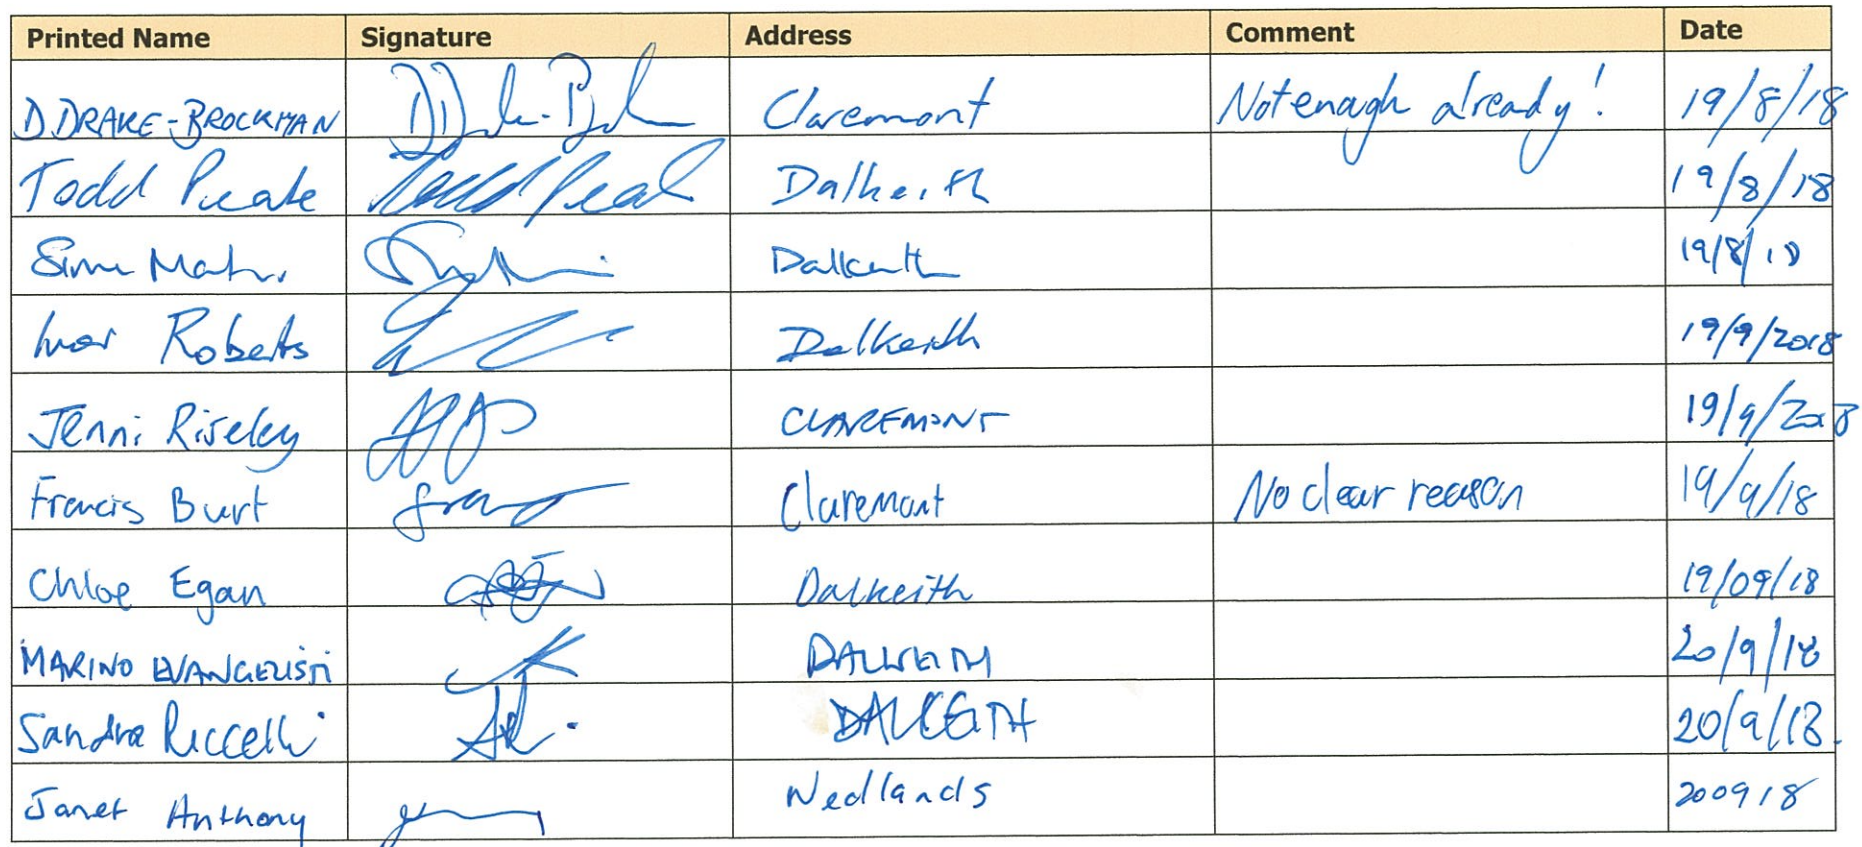 Printed Name Signature Address Comment Date
D.DRAKE-BROCKMAN Claremont Not enough already! 19/8/18
Todd Dalkeith 19/8/18
Dalkeith 19/8/18
Ivor Roberts Dalkeith 19/9/2018
Jenni Riseley CLAREMONT 19/9/2018
Francis Burt Claremont No clear reason 19/9/18
Chloe Egan Dalkeith 19/09/18
MARINO EVANGELISTI DALKEITH 20/9/18
Sandra Riccelli DALKEITH 20/9/18.
Janet Anthony Nedlands 200918